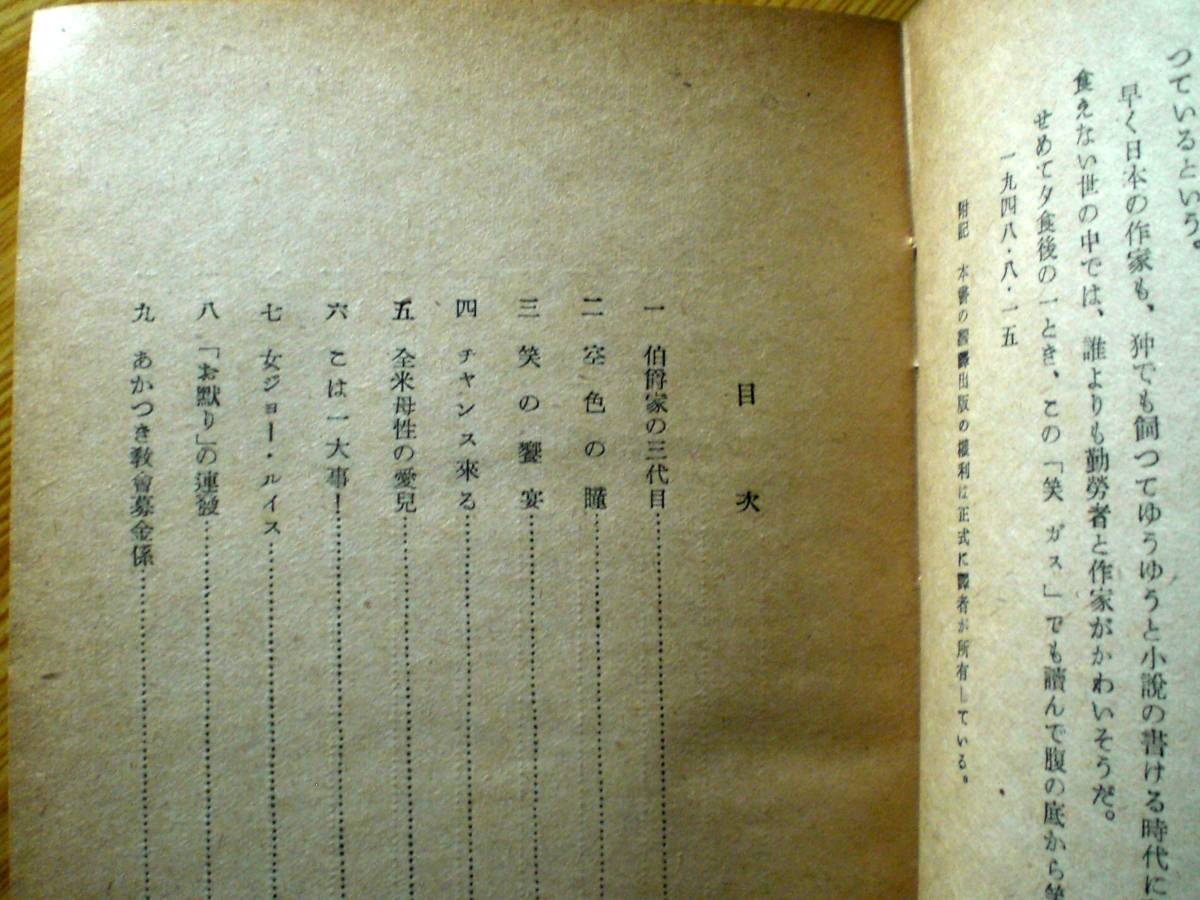 つているという。
早く日本の作家も、狆でも飼つてゆうゆうと小說の書ける時代に
食えない世の中では、誰よりも勤勞者と作家がかわいそうだ。
せめて夕食後の一とき、この「笑 ガス」でも讀んで腹の底から笑
一九四八・八・一五
附記 本書の飜譯出版の權利は正式に譯者が所有している。
目次
一 伯爵家の三代目
二 空色の瞳
三 笑の饗宴
四 チャンス來る
五 全米母性の愛兒
六 こは一大事！
七 女ジョー・ルイス
八 「お默り」の連發
九 あかつき敎會募金係